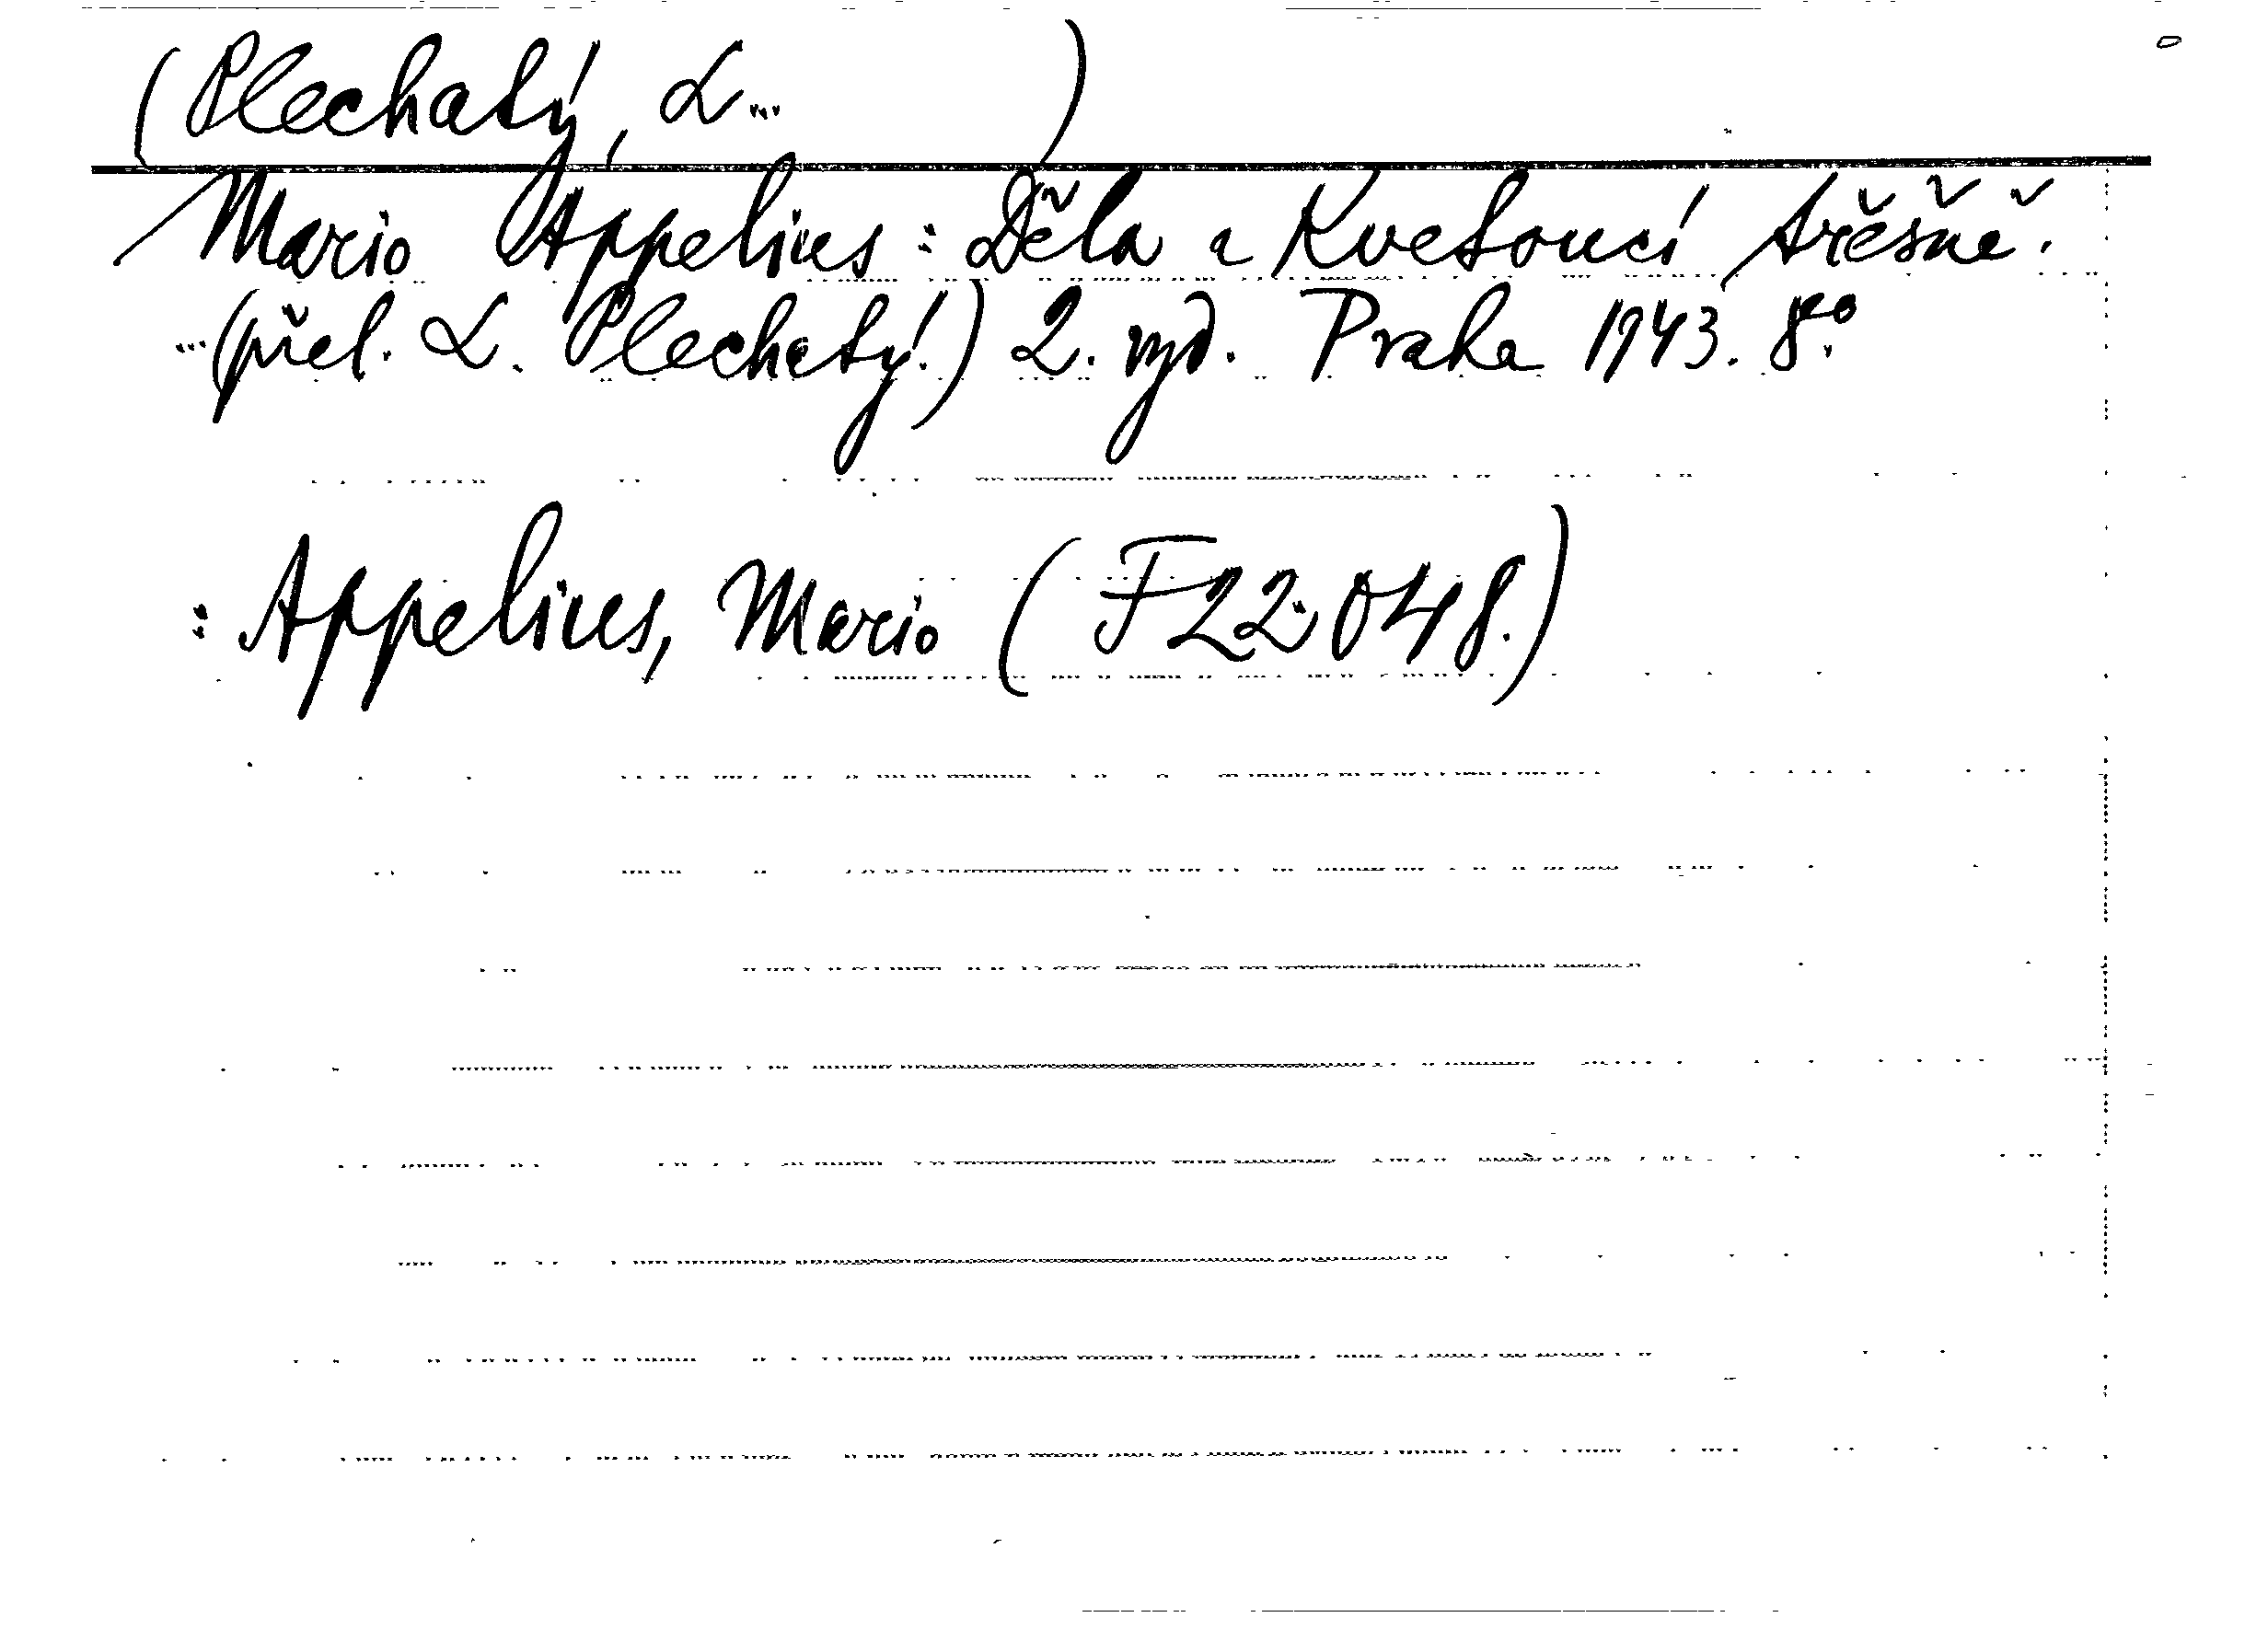 (Plechatý, L... )
Mario Appelius: Děla a Kvetoucí třěšně.
...(přel. L. Plechatý.) 2. vyd. Praha 1943. 8°.
: Appelius, Mario (F22048.)